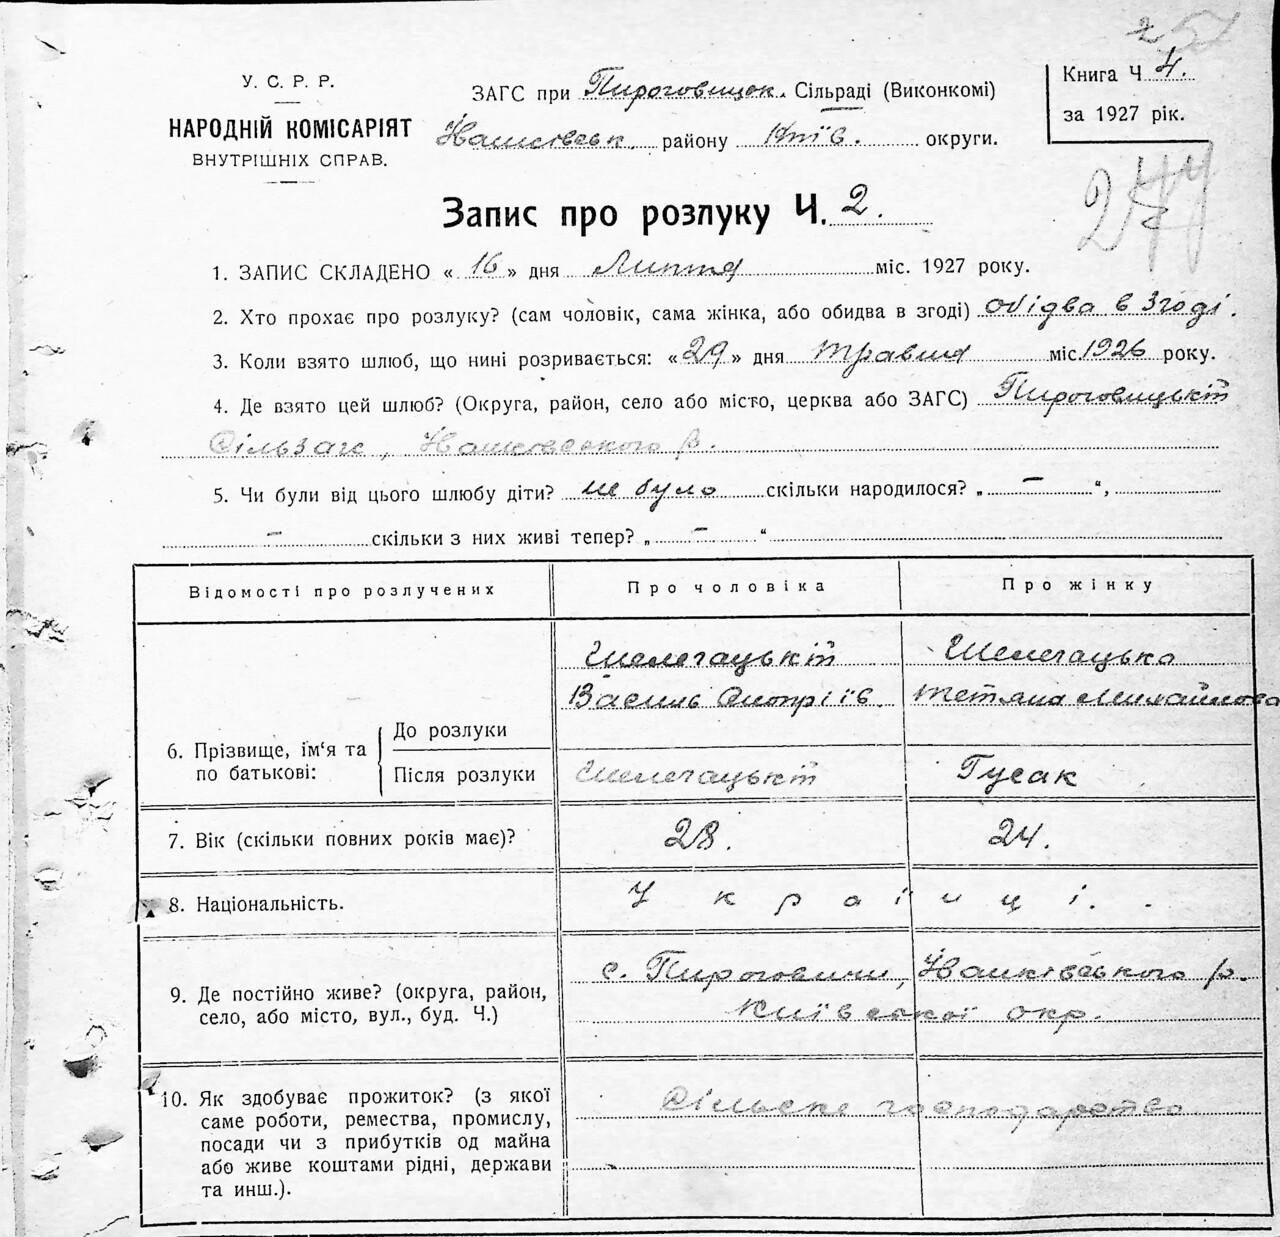 У. С. Р. Р.
НАРОДНІЙ КОМІСАРІЯТ
ВНУТРІШНІХ СПРАВ.
ЗАГС при Пироговицок. Сільраді (Виконкомі)
району Київ. округи.
Книга Ч 4.
за 1927 рік.
277
Запис про розлуку Ч. 2.
1. ЗАПИС СКЛАДЕНО « 16 » дня Лютня міс. 1927 року.
2. Хто прохає про розлуку? (сам чоловік, сама жінка, або обидва в згоді) обідва в згоді.
3. Коли взято шлюб, що нині розривається: « 29 » дня травня міс. 1926 року.
4. Де взято цей шлюб? (Округа, район, село або місто, церква або ЗАГС) Пироговицькій
Сільзагс, р.
5. Чи були від цього шлюбу діти? не було скільки народилося? „ — “,
— скільки з них живі тепер? „ — “
Відомості про розлучених Про чоловіка Про жінку
6. Прізвище, ім'я та по батькові:
До розлуки
Шелегацькій Шелегацька
Василь Дмитріїв. Тетяна Михайлова
Після розлуки Шелегацькій Гусак
7. Вік (скільки повних років має)? 28. 24.
8. Національність. Українці.
9. Де постійно живе? (округа, район, с. Пироговичи, р.
село, або місто, вул., буд. Ч.) Київської окр.
10. Як здобуває прожиток? (з якої Сільске господарство
саме роботи, ремества, промислу,
посади чи з прибутків од майна
або живе коштами рідні, держави
та инш.).